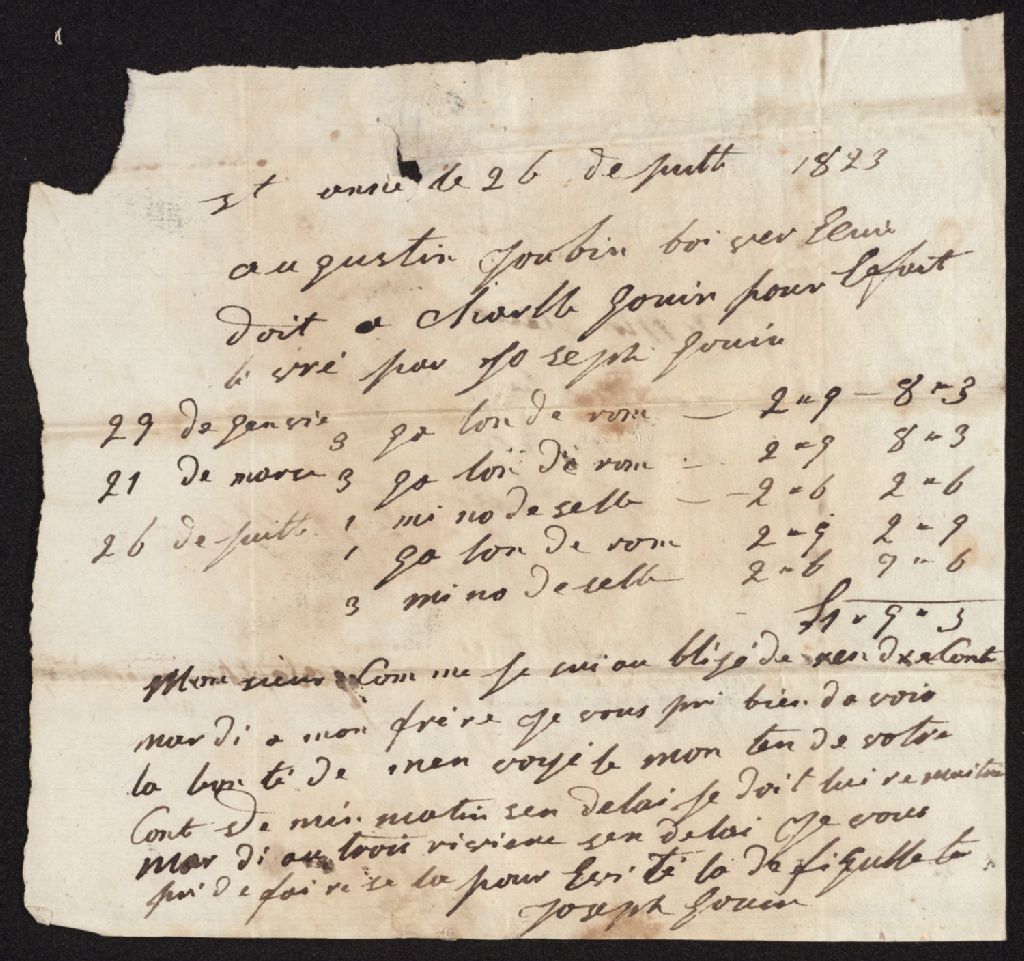 st anne le 26 de juill 1823
augustin Joubin boi ver
doit a charlle Gouin pour
li vré par Jo seph Gouin
29 de genvie 3 ga lon de rom — 2 " 9 — 8 " 3
21 de marce 3 ga lon de rom — 2 " 9 8 " 3
26 de juill 1 mi no de selle — 2 " 6 2 " 6
1 ga lon de rom 2 " 9 2 " 9
3 mi no de selle 2 " 6 7 " 6
£1 " 9 " 3
Mon sieur Com me je sui au bligé de ren dre Cont
mar di a mon frère Je vous pri bien da voir
la bon té de men voyé le mon ten de votre
Cont de min matin sen delai je doit lui re maitre
mar di au trois riviere sen delai Je vous
pri de fai re se la pour Evi té la de fi qulle té
Joseph Gouin